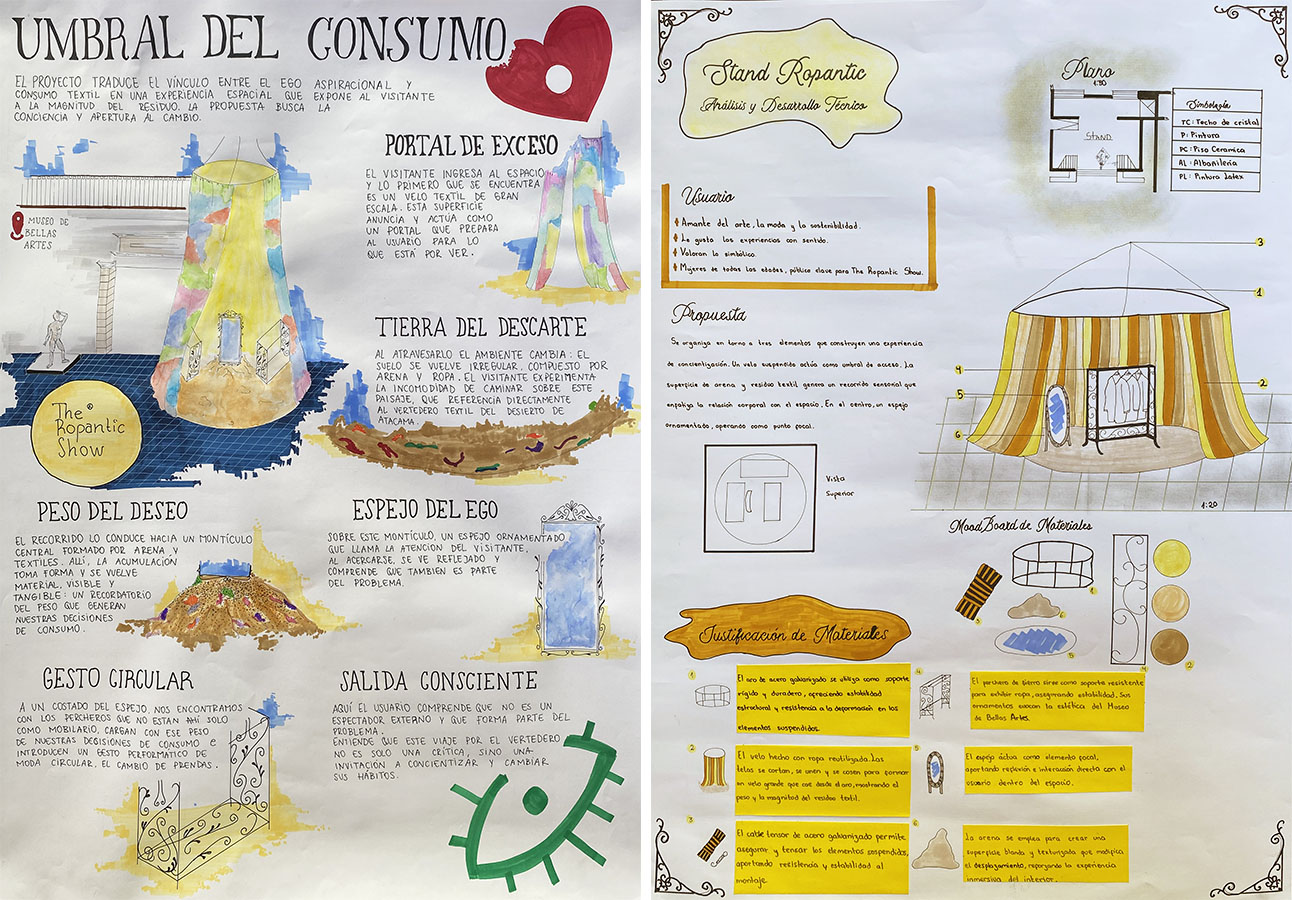 UMBRAL DEL CONSUMO
EL PROYECTO TRADUCE EL VÍNCULO ENTRE EL EGO ASPIRACIONAL Y
CONSUMO TEXTIL EN UNA EXPERIENCIA ESPACIAL QUE EXPONE AL VISITANTE
A LA MAGNITUD DEL RESIDUO. LA PROPUESTA BUSCA LA
CONCIENCIA Y APERTURA AL CAMBIO.
PORTAL DE EXCESO
EL VISITANTE INGRESA AL ESPACIO
Y LO PRIMERO QUE SE ENCUENTRA
ES UN VELO TEXTIL DE GRAN
ESCALA. ESTA SUPERFICIE
ANUNCIA Y ACTÚA COMO
UN PORTAL QUE PREPARA
AL USUARIO PARA LO
QUE ESTÁ POR VER.
MUSEO DE
BELLAS
ARTES
The
Ropantic
Show
TIERRA DEL DESCARTE
AL ATRAVESARLO EL AMBIENTE CAMBIA: EL
SUELO SE VUELVE IRREGULAR, COMPUESTO POR
ARENA Y ROPA. EL VISITANTE EXPERIMENTA
LA INCOMODIDAD DE CAMINAR SOBRE ESTE
PAISAJE, QUE REFERENCIA DIRECTAMENTE
AL VERTEDERO TEXTIL DEL DESIERTO DE
ATACAMA.
PESO DEL DESEO
EL RECORRIDO LO CONDUCE HACIA UN MONTÍCULO
CENTRAL FORMADO POR ARENA Y
TEXTILES. ALLÍ, LA ACUMULACIÓN
TOMA FORMA Y SE VUELVE
MATERIAL, VISIBLE Y
TANGIBLE: UN RECORDATORIO
DEL PESO QUE GENERAN
NUESTRAS DECISIONES
DE CONSUMO.
ESPEJO DEL EGO
SOBRE ESTE MONTÍCULO, UN ESPEJO ORNAMENTADO
QUE LLAMA LA ATENCIÓN DEL VISITANTE,
AL ACERCARSE, SE VE REFLEJADO Y
COMPRENDE QUE TAMBIEN ES PARTE
DEL PROBLEMA.
GESTO CIRCULAR
A UN COSTADO DEL ESPEJO, NOS ENCONTRAMOS
CON LOS PERCHEROS QUE NO ESTAN AHÍ SOLO
COMO MOBILARIO, CARGAN CON ESE PESO
DE NUESTRAS DECISIONES DE CONSUMO E
INTRODUCEN UN GESTO PERFORMATICO DE
MODA CIRCULAR, EL CAMBIO DE PRENDAS.
SALIDA CONSCIENTE
AQUÍ EL USUARIO COMPRENDE QUE NO ES UN
ESPECTADOR EXTERNO Y QUE FORMA PARTE DEL
PROBLEMA.
ENTIENDE QUE ESTE VIAJE POR EL VERTEDERO
NO ES SOLO UNA CRÍTICA, SINO UNA
INVITACIÓN A CONCIENTIZAR Y CAMBIAR
SUS HÁBITOS.
Stand Ropantic
Análisis y Desarrollo Técnico
Plano
STAND
Simbología
TC: Techo de cristal
P: Pintura
PC: Piso Ceramica
AL: Albañilería
PL: Pintura Latex
Usuario
Amante del arte, la moda y la sostenibilidad.
Le gusta las experiencias con sentido.
Valoran lo simbólico.
Mujeres de todas las edades, público clave para The Ropantic Show.
Propuesta
Se organiza en torno a tres elementos que construyen una experiencia
de concientización. Un velo suspendido actúa como umbral de acceso. La
superficie de arena y residuo textil genera un recorrido sensorial que
enfatiza la relación corporal con el espacio. En el centro, un espejo
ornamentado, operando como punto focal.
3
1
4
2
5
6
1:20
Vista
Superior
Mood Board de Materiales
Justificación de Materiales
1
El aro de acero galvanizado se utiliza como soporte
rígido y duradero, ofreciendo estabilidad
estructural y resistencia a la deformación en los
elementos suspendidos.
2
El velo hecho con ropa reutilizada. Las
telas se cortan, se unen y se cosen para formar
un velo grande que cae desde el aro, mostrando el
peso y la magnitud del residuo textil.
3
El cable tensor de acero galvanizado permite
asegurar y tensar los elementos suspendidos,
aportando resistencia y estabilidad al
montaje.
4
El perchero de fierro sirve como soporte resistente
para exhibir ropa, asegurando estabilidad. Sus
ornamentos evocan la estética del Museo
de Bellas Artes.
5
El espejo actúa como elemento focal,
aportando reflexión e interacción directa con el
usuario dentro del espacio.
6
La arena se emplea para crear una
superficie blanda y texturizada que modifica
el desplazamiento, reforzando la experiencia
inmersiva del interior.